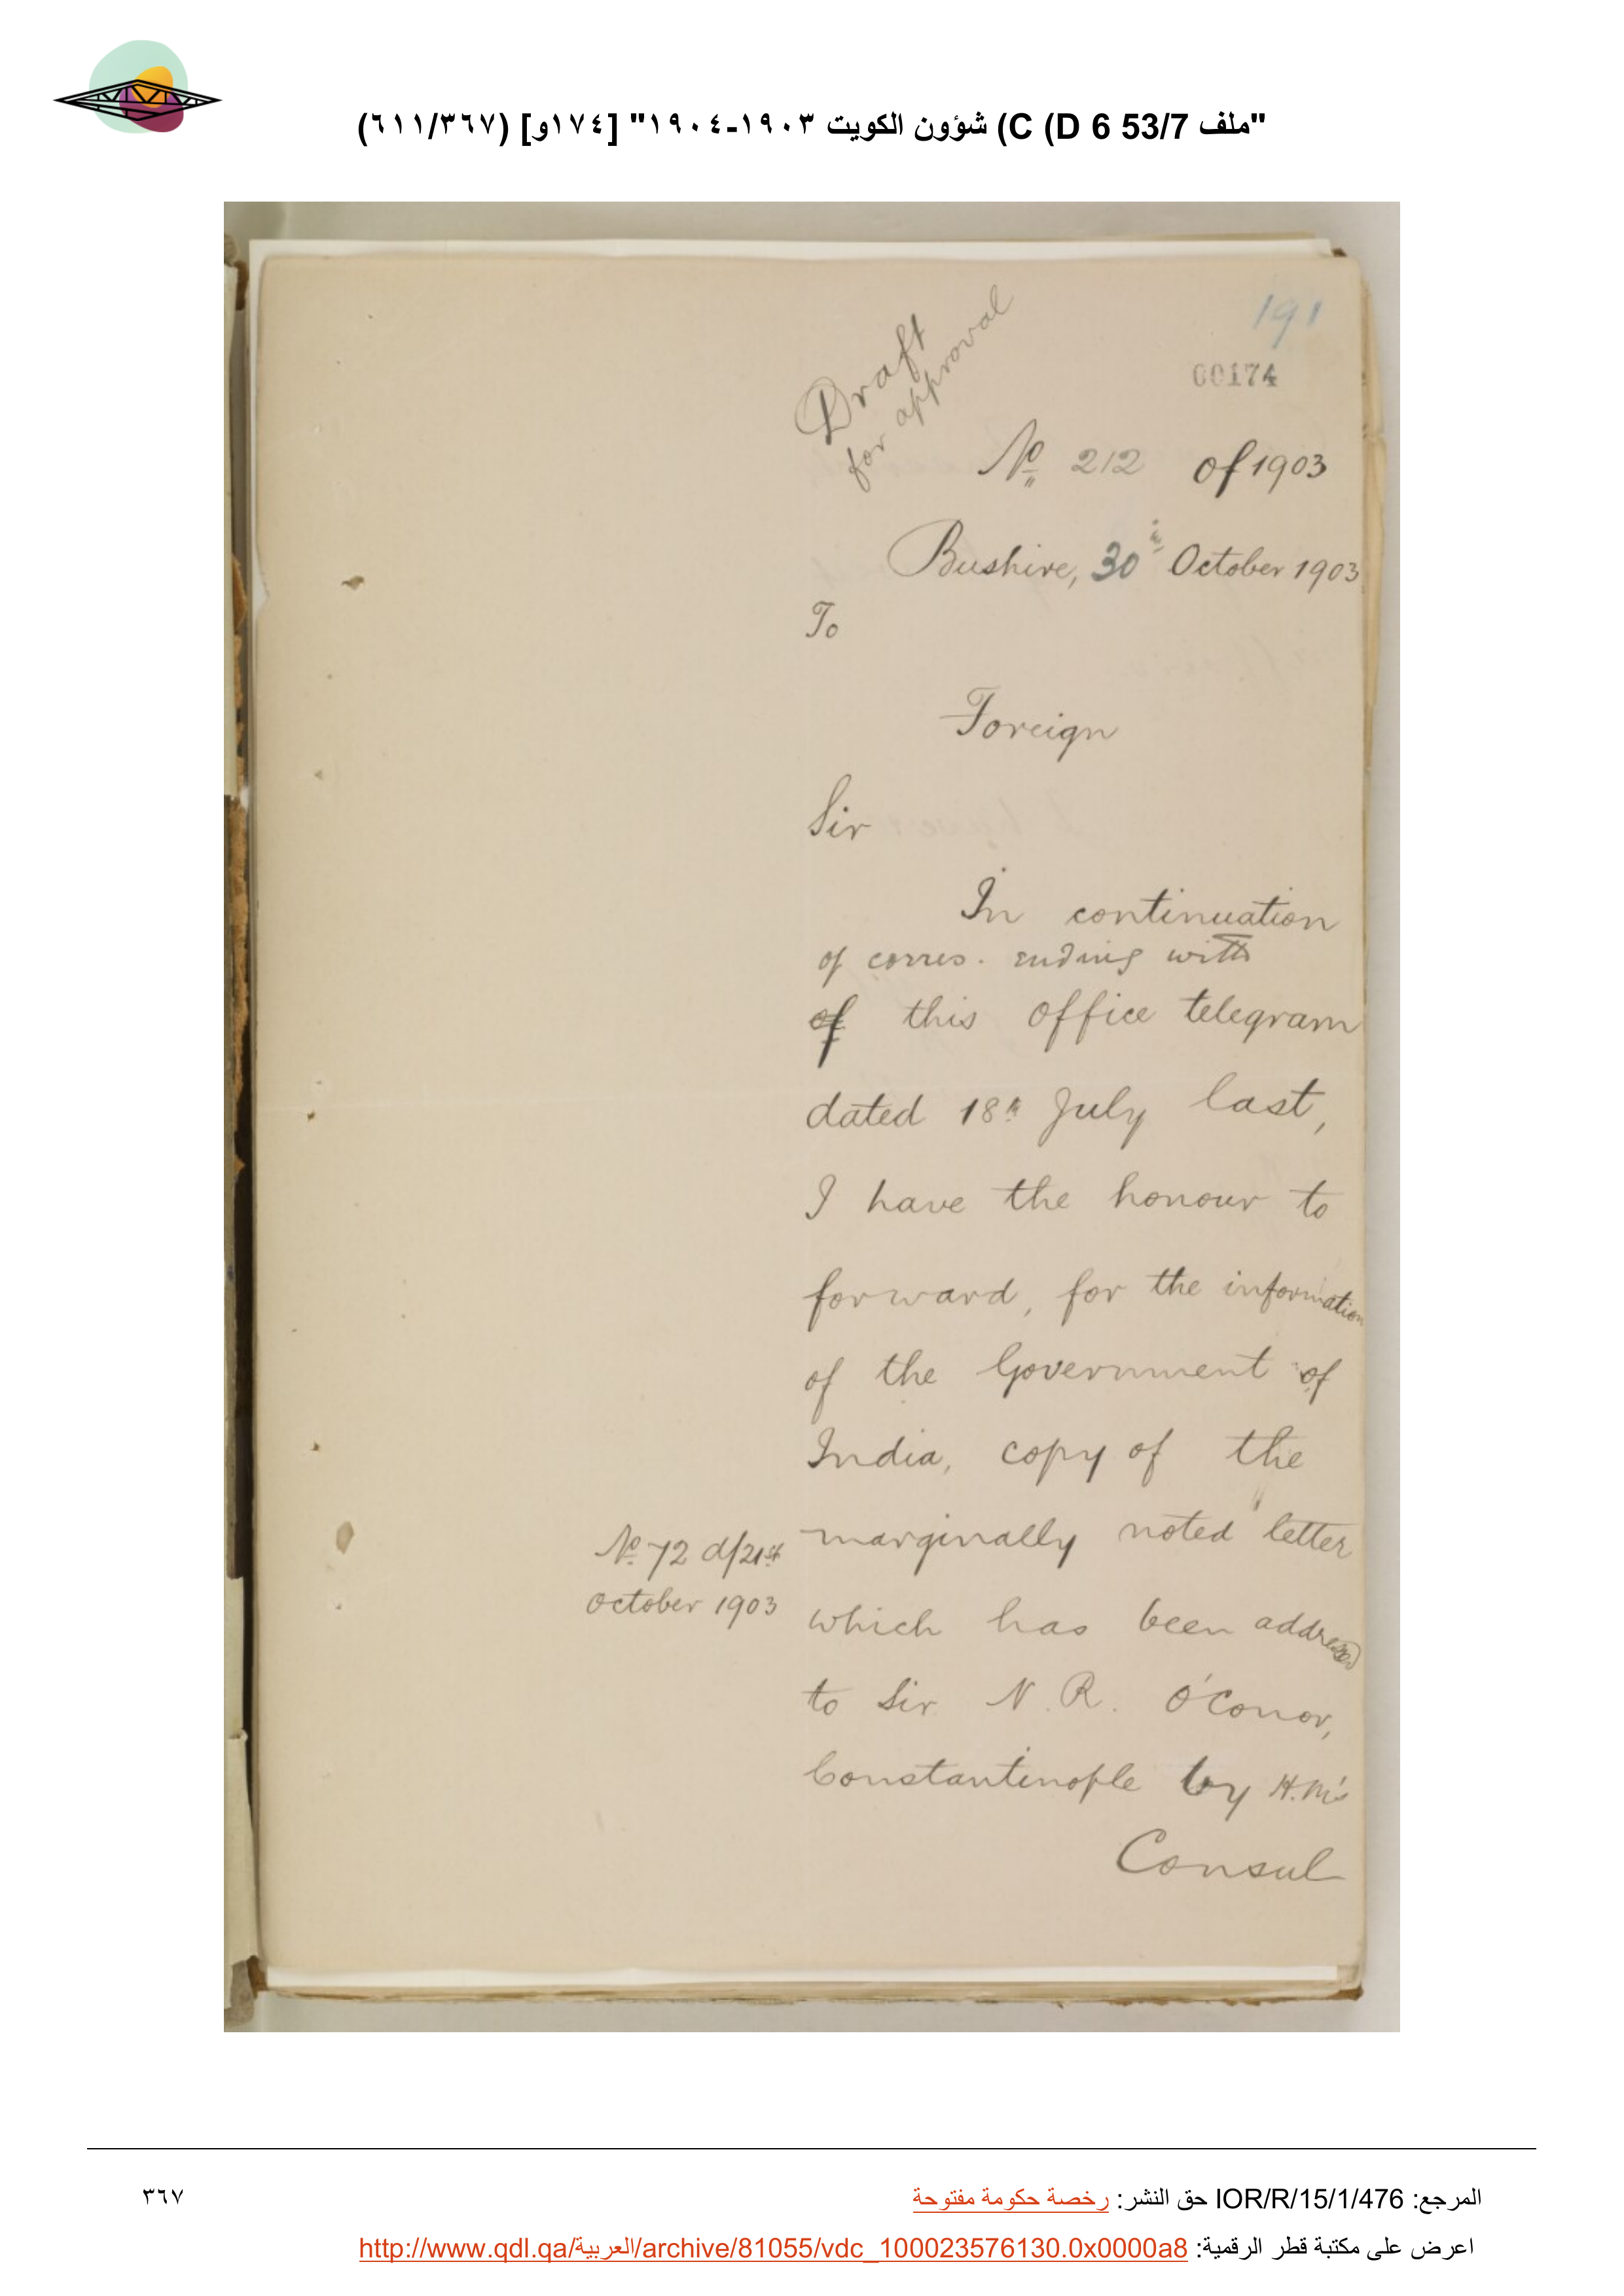 "ملف 53/7 C (D 6) شؤون الكويت ١٩٠٣-١٩٠٤" [١٧٤و] (٦١١/٣٦٧)
Draft
for approval
191
00174
No. 212 of 1903
Bushire, 30th October 1903
To
Foreign
Sir
In continuation
of corres. ending with
of this office telegram
dated 18th July last,
I have the honour to
forward, for the information
of the Government of
India, copy of the
marginally noted letter
No. 72 d/21st
October 1903
which has been addressed
to Sir N. R. O'Conor,
Constantinople by H.M's
Consul
المرجع: IOR/R/15/1/476 حق النشر: رخصة حكومة مفتوحة
٣٦٧
اعرض على مكتبة قطر الرقمية: http://www.qdl.qa/العربية/archive/81055/vdc_100023576130.0x0000a8